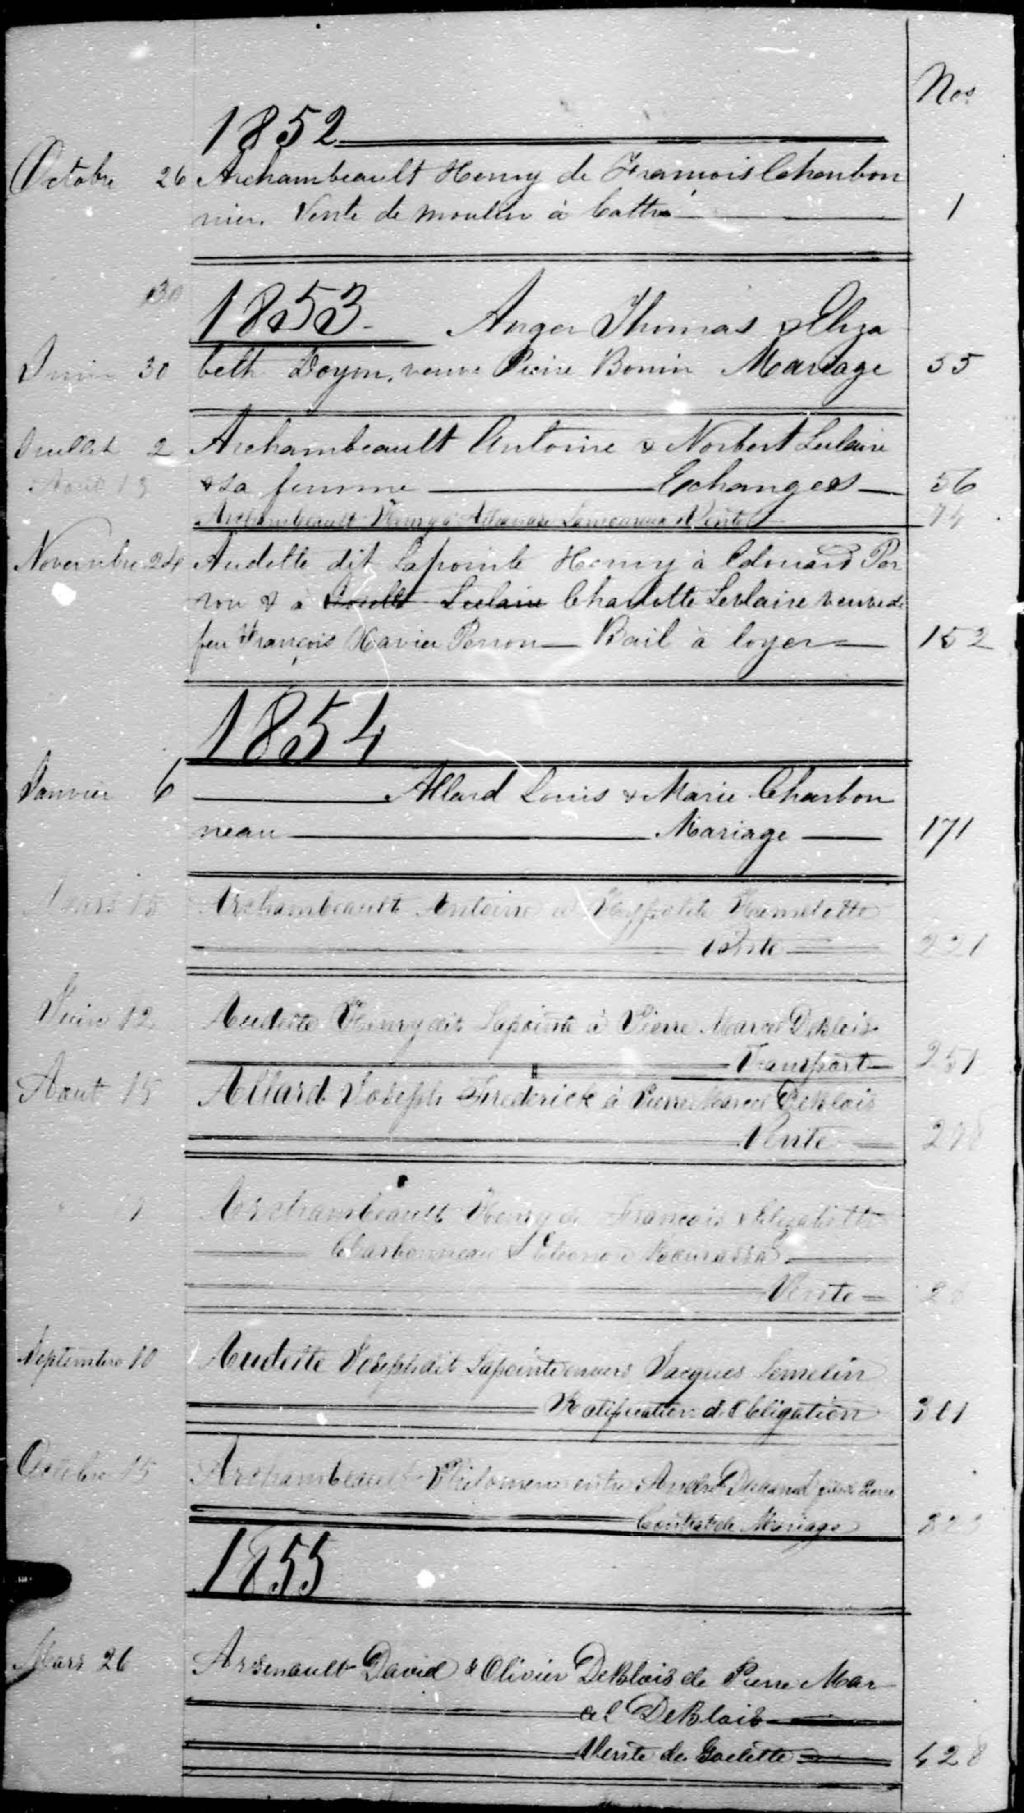 Nos
1852
Octobre 26 Archambeault Henry de Francois Charbon
nier. Vente de moulin à battre 1
30
1853. Auger Thomas & Eliza
Juin 30 beth Doyon, veuve Pierre Bonin Mariage 55
Juillet 2 Archambeault Antoine & Norbert Leclaire
Aout 13 & sa femme Echanges 56
Archambeault Henry à Vente 74
Novembre 24 Audette dit Lapointe Henry à Edouard Per
ron & à Leclaire Charlotte Leclaire veuve de
feu François Xavier Perron Bail à loyer 152
1854
Janvier 6 Allard Louis & Marie Charbon
neau Mariage 171
Mars 15 Archambeault Antoine à Hyppolite Hamelotte
Vente 221
Juin 12 Audette Henry dit Lapointe à Pierre Marcel DeBlois
Transport 251
Aout 15 Allard Joseph Frederick à Pierre Marcel DeBlois
Vente
Archambeault Henry de François & Elizabeth
Charbonneau &
Vente
Septembre 10 Audette Joseph dit Lapointe envers Jacques Semelin
Ratification d'Obligation 311
Octobre 15 Archambeault Philomene entre André Durand
Contrat de Mariage
1855
Mars 26 Arsenault David & Olivier DeBlois de Pierre Mar
cel DeBlois
Vente de Goelette 428